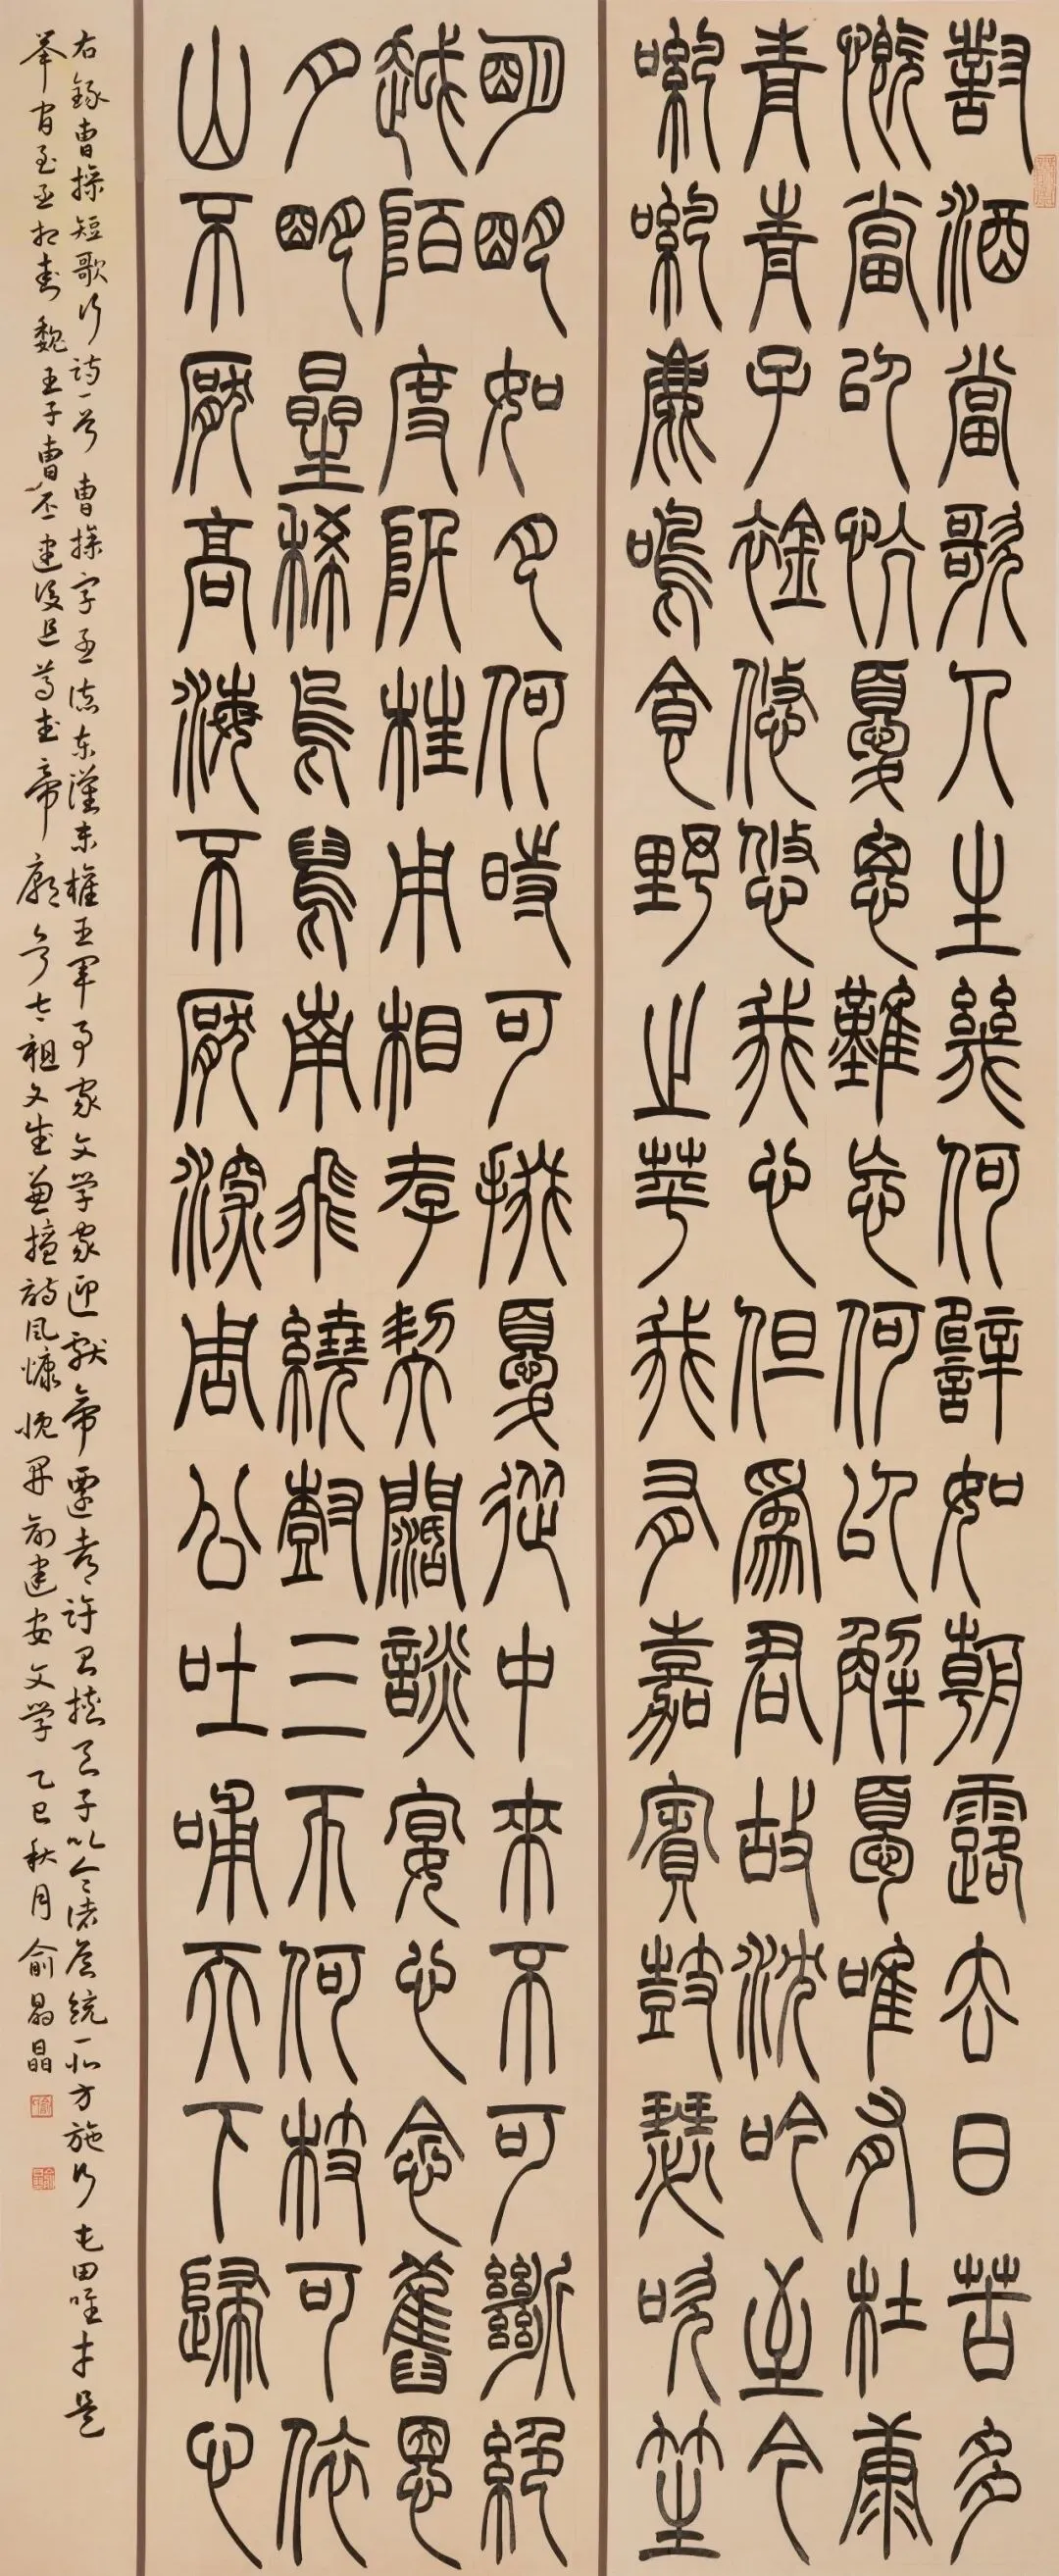 對酒當歌人生幾何譬如朝露去日苦多
慨當以慷憂思難忘何以解憂唯有杜康
青青子衿悠悠我心但為君故沈吟至今
呦呦鹿鳴食野之苹我有嘉賓鼓瑟吹笙
明明如月何時可掇憂從中來不可斷絕
越陌度阡枉用相存契闊談宴心念舊恩
月明星稀烏鵲南飛繞樹三匝何枝可依
山不厭高海不厭深周公吐哺天下歸心
右錄曹操短歌行詩一首 曹操字孟德東漢末權臣軍事家文學家迎獻帝遷都許昌挾天子以令諸侯統一北方施行屯田唯才是
舉官至丞相封魏王子曹丕建後追尊武帝廟號太祖文武兼擅詩風慷慨開創建安文學 乙巳秋月俞晶晶